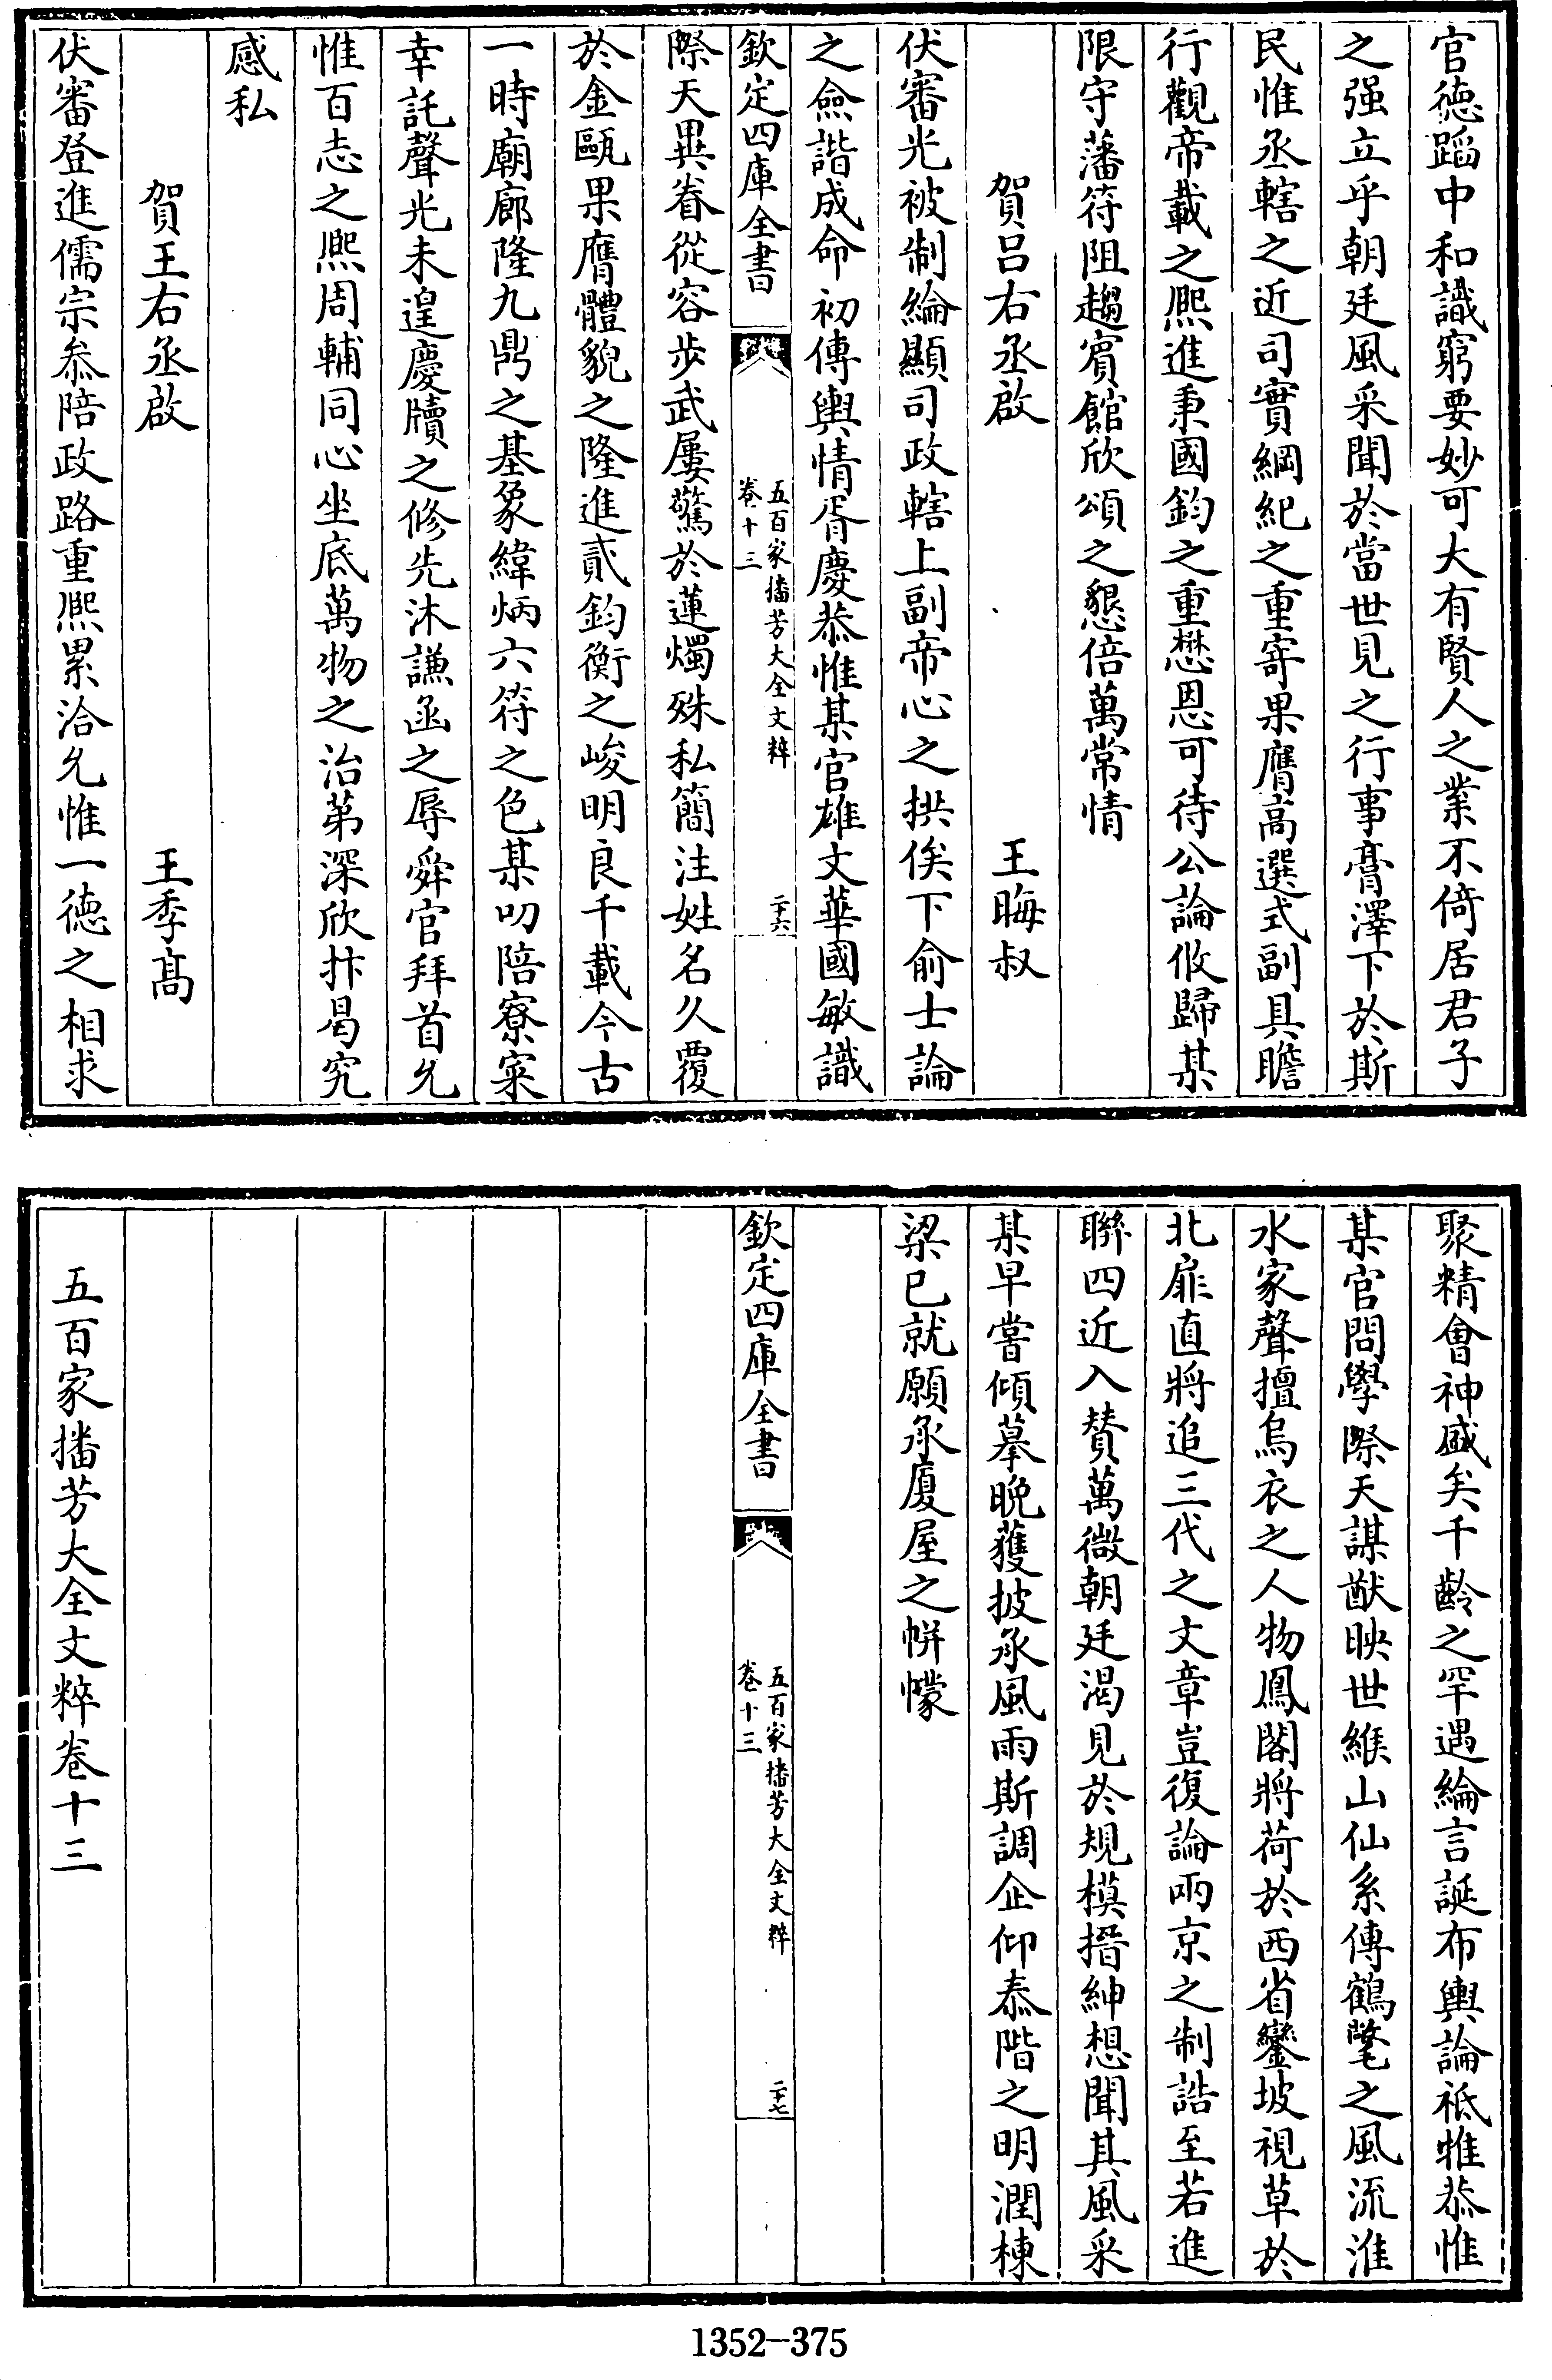 官德蹈中和識窮要妙可大有賢人之業不倚居君子
之强立乎朝廷風采聞於當世見之行事膏澤下於斯
民惟丞轄之近司實綱紀之重寄果膺高選式副具瞻
行觀帝載之熙進秉國鈞之重懋恩可待公論攸歸某
限守藩符阻趨賓館欣頌之懇倍萬常情
賀呂右丞啟
王晦叔
伏審光被制綸顯司政轄上副帝心之拱俟下俞士論
之僉諧成命初傳輿情胥慶恭惟某官雄文華國敏識
欽定四庫全書
五百家播芳大全文粹
卷十三
二十六
際天異眷從容步武屢驚於蓮燭殊私簡注姓名久覆
於金甌果膺體貌之隆進貳鈞衡之峻明良千載今古
一時廟廊隆九鼎之基象緯炳六符之色某叨陪寮寀
幸託聲光未遑慶牘之修先沐謙函之辱舜官拜首允
惟百志之熙周輔同心坐底萬物之治第深欣抃曷究
感私
賀王右丞啟
王季高
伏審登進儒宗叅陪政路重熙累洽允惟一德之相求
聚精會神盛矣千齡之罕遇綸言誕布輿論祗惟恭惟
某官問學際天謀猷映世緱山仙系傳鶴氅之風流淮
水家聲擅烏衣之人物鳳閣將荷於西省鑾坡視草於
北扉直將追三代之文章豈復論兩京之制誥至若進
聯四近入贊萬微朝廷渴見於規模搢紳想聞其風采
某早嘗傾摹晚獲披承風雨斯調企仰泰階之明潤棟
梁已就願承廈屋之帡幪
欽定四庫全書
五百家播芳大全文粹
卷十三
二十七
五百家播芳大全文粹卷十三
1352-375